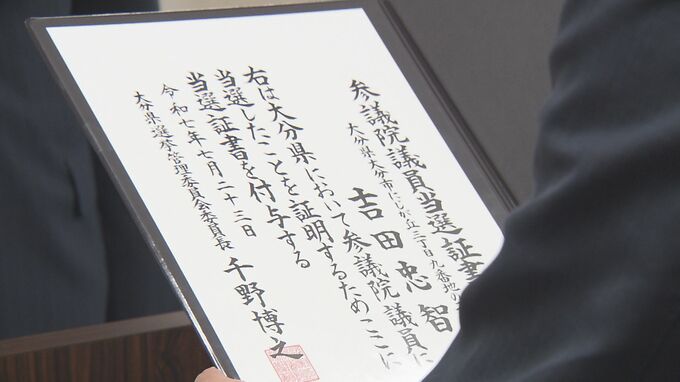 参議院議員当選証書
大分県大分市にしが丘三丁目九番地の
吉田忠智
右は大分県において参議院議員に
当選したことを証明するためここに
当選証書を付与する
令和七年七月二十三日
大分県選挙管理委員会委員長 千野博之